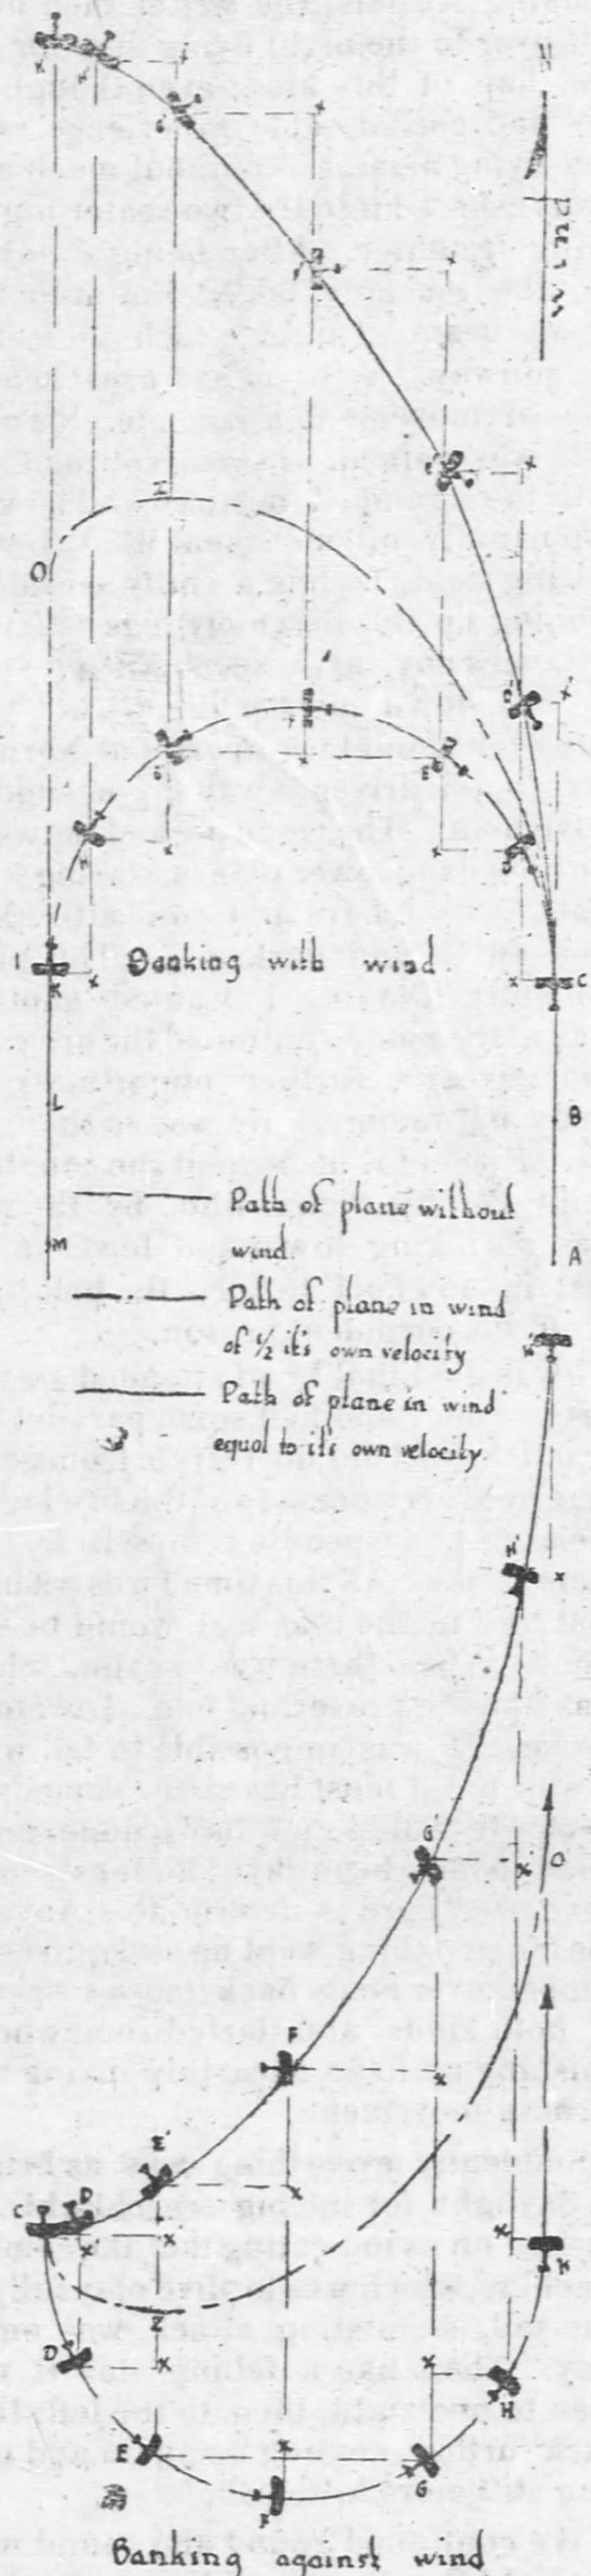 N
Wind
Z
O
E
I
K
Banking with wind.
C
L
B
M
A
Path of plane without
wind.
Path of plane in wind
of ½ it's own velocity
Path of plane in wind
equal to it's own velocity.
K'
H'
G'
O
F'
E'
C
D'
K
Z
D
H
E
G
F
Banking against wind